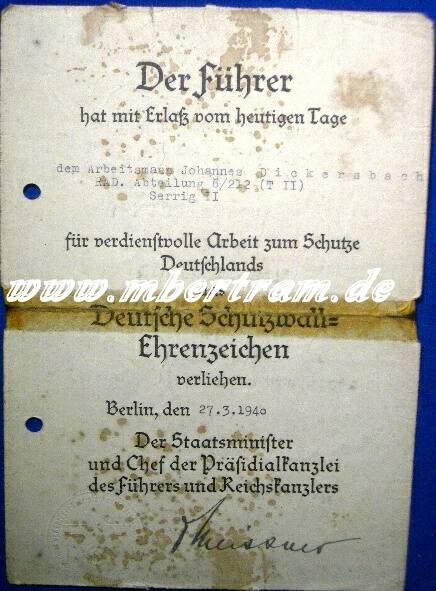 Der Führer
hat mit Erlaß vom heutigen Tage
dem Arbeitsmann Johannes Dickersbach
RAD. Abteilung 6/212 (T II)
Serrig II
für verdienstvolle Arbeit zum Schutze
Deutschlands
www.mbertram.de
Deutsche Schutzwall=
Ehrenzeichen
verliehen.
Berlin, den 27.3.1940
Der Staatsminister
und Chef der Präsidialkanzlei
des Führers und Reichskanzlers
Meissner